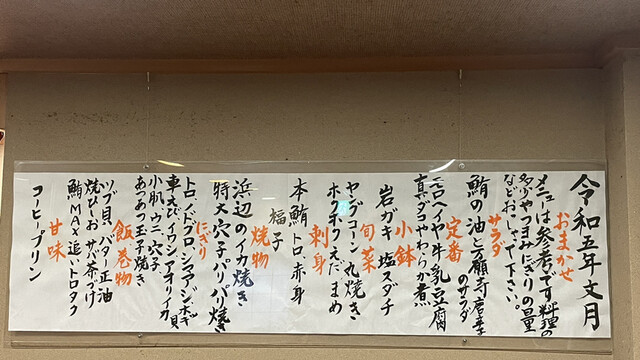 令和五年文月
おまかせ
メニューは参考です料理の
多少やつまみにぎりの量
などおっしゃって下さい。
サラダ
鮪の油と万願寺唐辛子
のサラダ
定番
モロヘイヤ牛乳豆腐
真ダコやわらか煮
小鉢
岩ガキ塩スダチ
旬菜
ヤングコーン丸焼き
ホクホクえだまめ
刺身
本鮪トロ、赤身
福子
焼物
浜辺のイカ焼き
特大穴子パリパリ焼き
にぎり
トロ ノドグロ シマアジ ホッキ貝
車えび イワシ アオリイカ
小肌、ウニ、穴子
あつあつ玉子焼き
飯巻物
ツブ貝バター正油
焼ひしお サバ茶づけ
鮪MAX追いトロタク
甘味
コーヒープリン